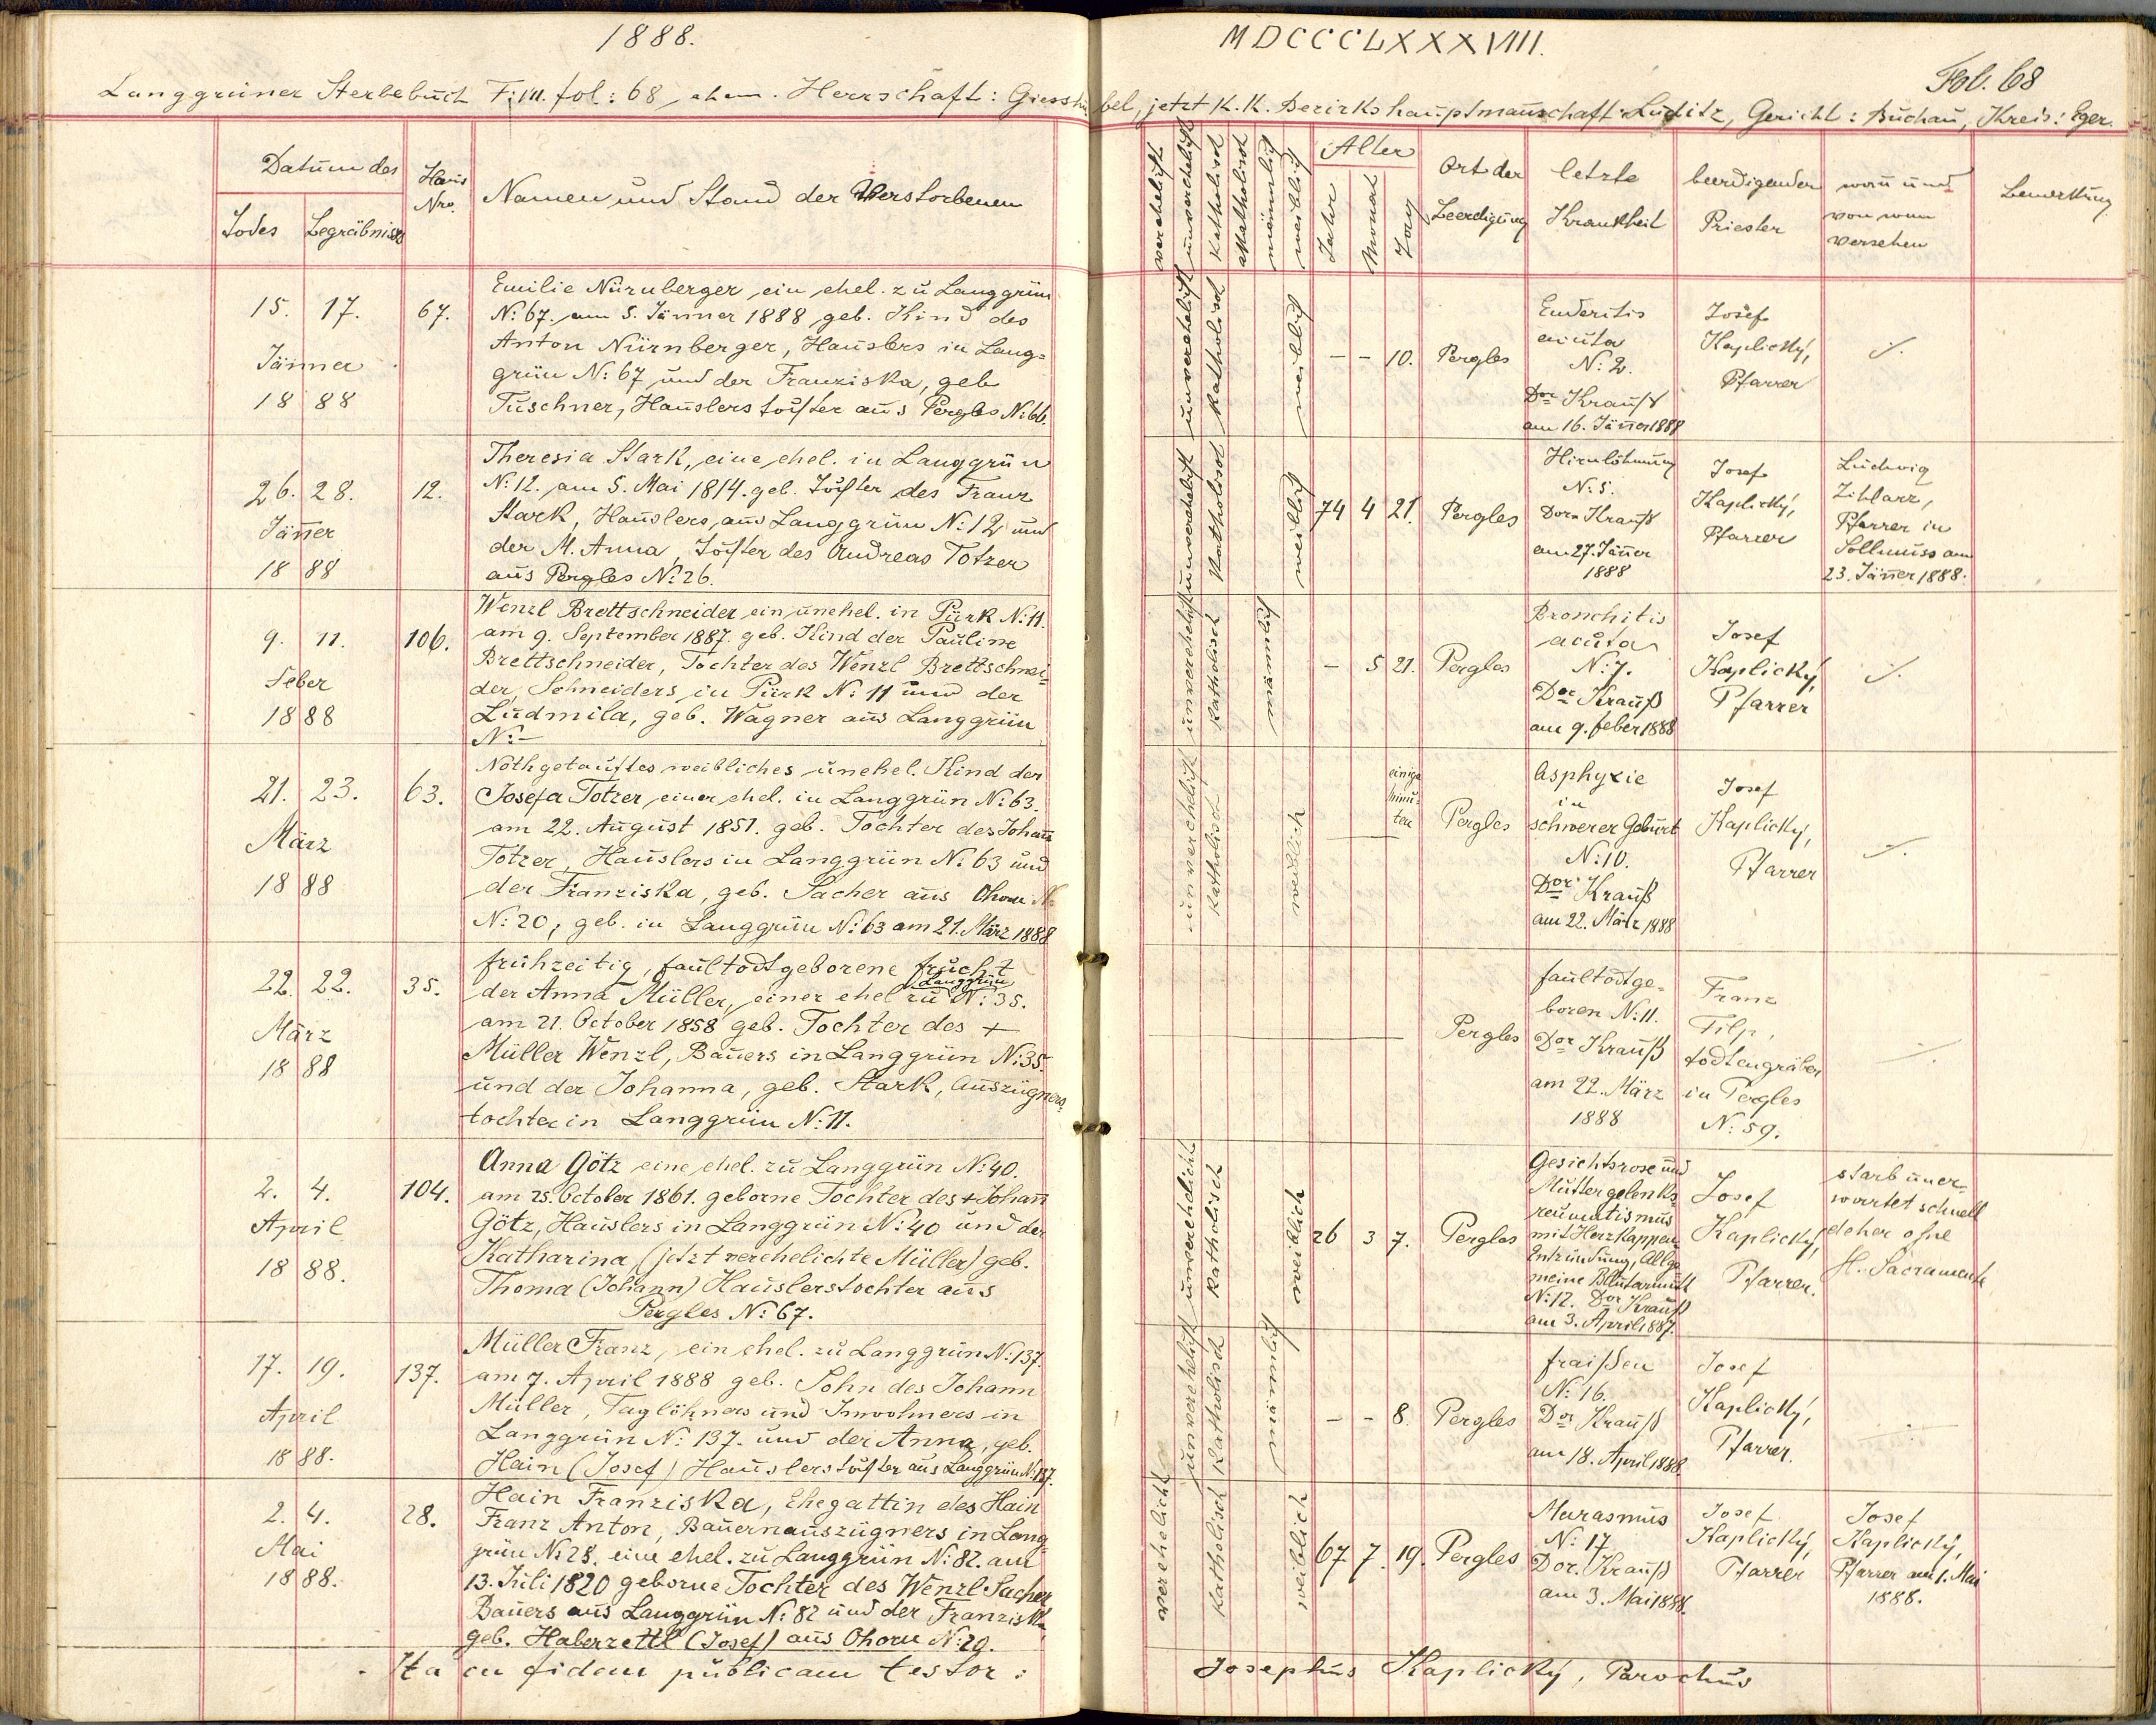 1888.
MDCCCLXXXVIII.
Fol. 68
Langgrüner Sterbebuch T: III. fol: 68, ehem. Herrschaft: Giesshübel, jetzt K. K. Bezirkshauptmannschaft Luditz, Gericht: Buchau, Kreis: Eger.
Datum des
Todes
Begräbnisses
Haus Nro.
Namen und Stand der Verstorbenen
verehelicht
unverehelicht
Katholisch
Akatholisch
männlich
weiblich
Alter
Jahr
Monat
Tag
Ort der
Beerdigung
letzte
Krankheit
beerdigender
Priester
wan und
von wem
versehen
Bemerkung
15. 17.
Jänner
1888
67.
Emilie Nürnberger ein ehel. zu Langgrün
N: 67. am 5. Jänner 1888 geb. Kind des
Anton Nürnberger, Hauslers in Lang=
grün N: 67 und der Franziska, geb
Tuschner, Hauslerstochter aus Pergles N: 66.
unverehelicht
Katholisch
weiblich
– – 10.
Pergles
Enderitis
acuta
N: 2.
Dor Krauß
am 16. Jänner 1888
Josef
Kaplický,
Pfarrer
./.
26. 28.
Jänner
1888
12.
Theresia Stark, eine ehel. in Langgrün
N: 12. am 5. Mai 1814. geb. Tochter des Franz
Stark, Hauslers, aus Langgrün N: 12 und
der M. Anna, Tochter des Andreas Totzer
aus Pergles N: 26.
unverehelicht
Katholisch
weiblich
74 4 21.
Pergles
Hirnlähmung
N: 5.
Dor Krauß
am 27. Jänner
1888
Josef
Kaplický,
Pfarrer
Ludwig
Zihlarz,
Pfarrer in
Sollmuss am
23. Jänner 1888.
9. 11.
Feber
1888
106.
Wenzl Brettschneider ein unehel. in Pürk N: 11.
am 9. September 1887. geb. Kind der Pauline
Brettschneider, Tochter des Wenzl Brettschnei=
der, Schneiders in Pürk N: 11 und der
Ludmila, geb. Wagner aus Langgrün
N: –
unverehelicht
Katholisch
männlich
– 5 21.
Pergles
Bronchitis
acuta
N: 7.
Dor Krauß
am 9. feber 1888
Josef
Kaplický,
Pfarrer
./.
21. 23.
März
1888
63.
Nothgetauftes weibliches unehel. Kind der
Josefa Totzer einer ehel. in Langgrün N: 63.
am 22. August 1851. geb. Tochter des Johann
Totzer, Hauslers in Langgrün N: 63 und
der Franziska, geb. Sacher aus Ohorn N:
N: 20, geb. in Langgrün N: 63 am 21. März 1888
unverehelicht
Katholisch
weiblich
einige
Minu=
ten
Pergles
Asphyxie
in
schwerer Geburt
N: 10.
Dor Krauß
am 22. März 1888
Josef
Kaplický,
Pfarrer
./.
22. 22.
März
1888
35.
frühzeitig, faultodtgeborene frucht
der Anna Müller, einer ehel zu Langgrün N: 35.
am 21. October 1858 geb. Tochter des +
Müller Wenzl, Bauers in Langgrün N: 35.
und der Johanna, geb. Stark, Auszügners=
tochter in Langgrün N: 11.
Pergles
faultodtge=
boren N: 11.
Dor Krauß
am 22. März
1888
Franz
Filp,
todtengräber
in Pergles
N: 59.
./.
2. 4.
April
1888.
104.
Anna Götz eine ehel. zu Langgrün N: 40.
am 25. October 1861. geborne Tochter des + Johann
Götz, Hauslers in Langgrün N: 40 und der
Katharina (jetzt verehelichte Müller) geb.
Thoma (Johann) Hauslerstochter aus
Pergles N: 67.
unverehelicht
Katholisch
weiblich
26 3 7.
Pergles
Gesichtsrose und
Muttergelenks
reumatismus
mit Herzkappen
Entzündung, Allge
meine Blutarmutt
N: 12. Dor Krauß
am 3. April 1887.
Josef
Kaplický,
Pfarrer.
starb uner=
wartet schnell
daher ohne
H. Sacramente
17. 19.
April
1888.
137.
Müller Franz, ein ehel. zu Langgrün N: 137.
am 7. April 1888 geb. Sohn des Johann
Müller, Taglöhners und Inwohners in
Langgrün N: 137. und der Anna, geb.
Hain (Josef) Hauslerstochter aus Langgrün N: 137.
unverehelicht
Katholisch
männlich
– – 8.
Pergles
fraißen
N: 16.
Dor Krauß
am 18. April 1888.
Josef
Kaplický,
Pfarrer.
./.
2. 4.
Mai
1888.
28.
Hain Franziska, Ehegattin des Hain
Franz Anton, Bauernauszügners in Lang=
grün N: 28. eine ehel. zu Langgrün N: 82. am
13. Juli 1820 geborne Tochter des Wenzl Sacher
Bauers aus Langgrün N: 82 und der Franziska
geb. Haberzettl (Josef) aus Ohorn N: 20.
verehelicht
Katholisch
weiblich
67 7. 19.
Pergles
Marasmus
N: 17
Dor. Krauß
am 3. Mai 1888.
Josef
Kaplický,
Pfarrer
Josef
Kaplický,
Pfarrer am 1. Mai
1888.
Ita in fidem publicam testor:
Josephus Kaplický, Parochus